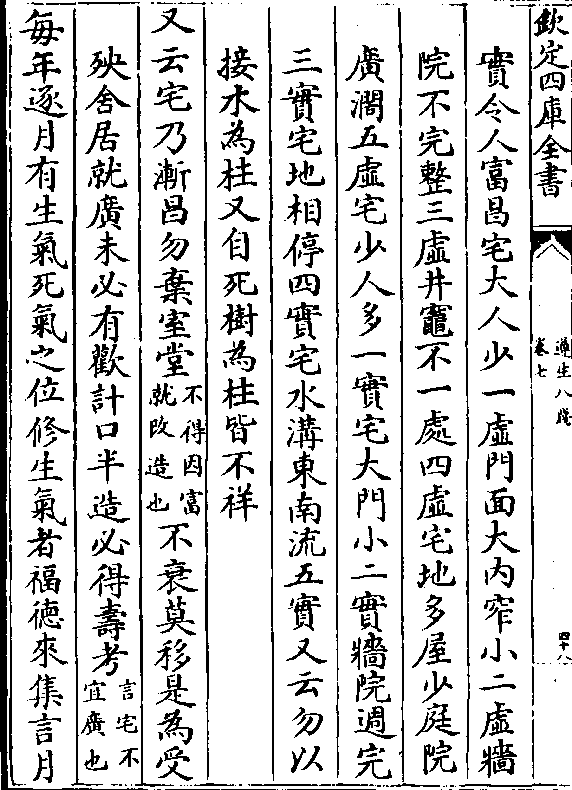 欽定四庫全書
遵生八牋
卷七
四十八
實令人富昌宅大人少一虛門面大内窄小二虛牆
院不完整三虛井竈不一處四虛宅地多屋少庭院
廣濶五虛宅少人多一實宅大門小二實牆院週完
三實宅地相停四實宅水溝東南流五實又云勿以
接木為柱又自死樹為柱皆不祥
又云宅乃漸昌勿棄室堂不得因富就改造也不衰莫移是為受
殃舍居就廣未必有歡計口半造必得壽考言宅不宜廣也
每年逐月有生氣死氣之位修生氣者福徳來集言月